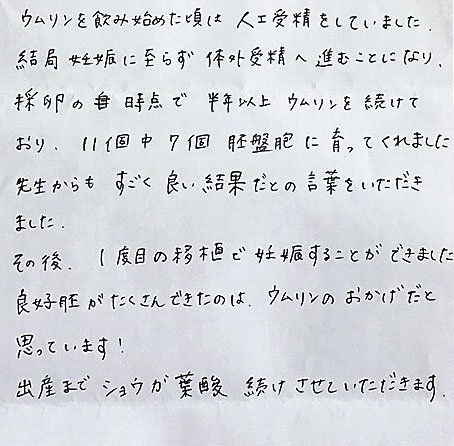 ウムリンを飲み始めた頃は 人工受精をしていました.
結局 妊娠に至らず 体外受精へ 進むことになり、
採卵の 時点で 半年以上 ウムリンを 続けて
おり、11個中 7個 胚盤胞に 育ってくれました
先生からも すごく 良い結果だとの 言葉をいただき
ました.
その後、1度目の移植で 妊娠することが できました
良好胚が たくさんできたのは、ウムリンの おかげだと
思っています!
出産まで ショウガ葉酸 続けさせていただきます.